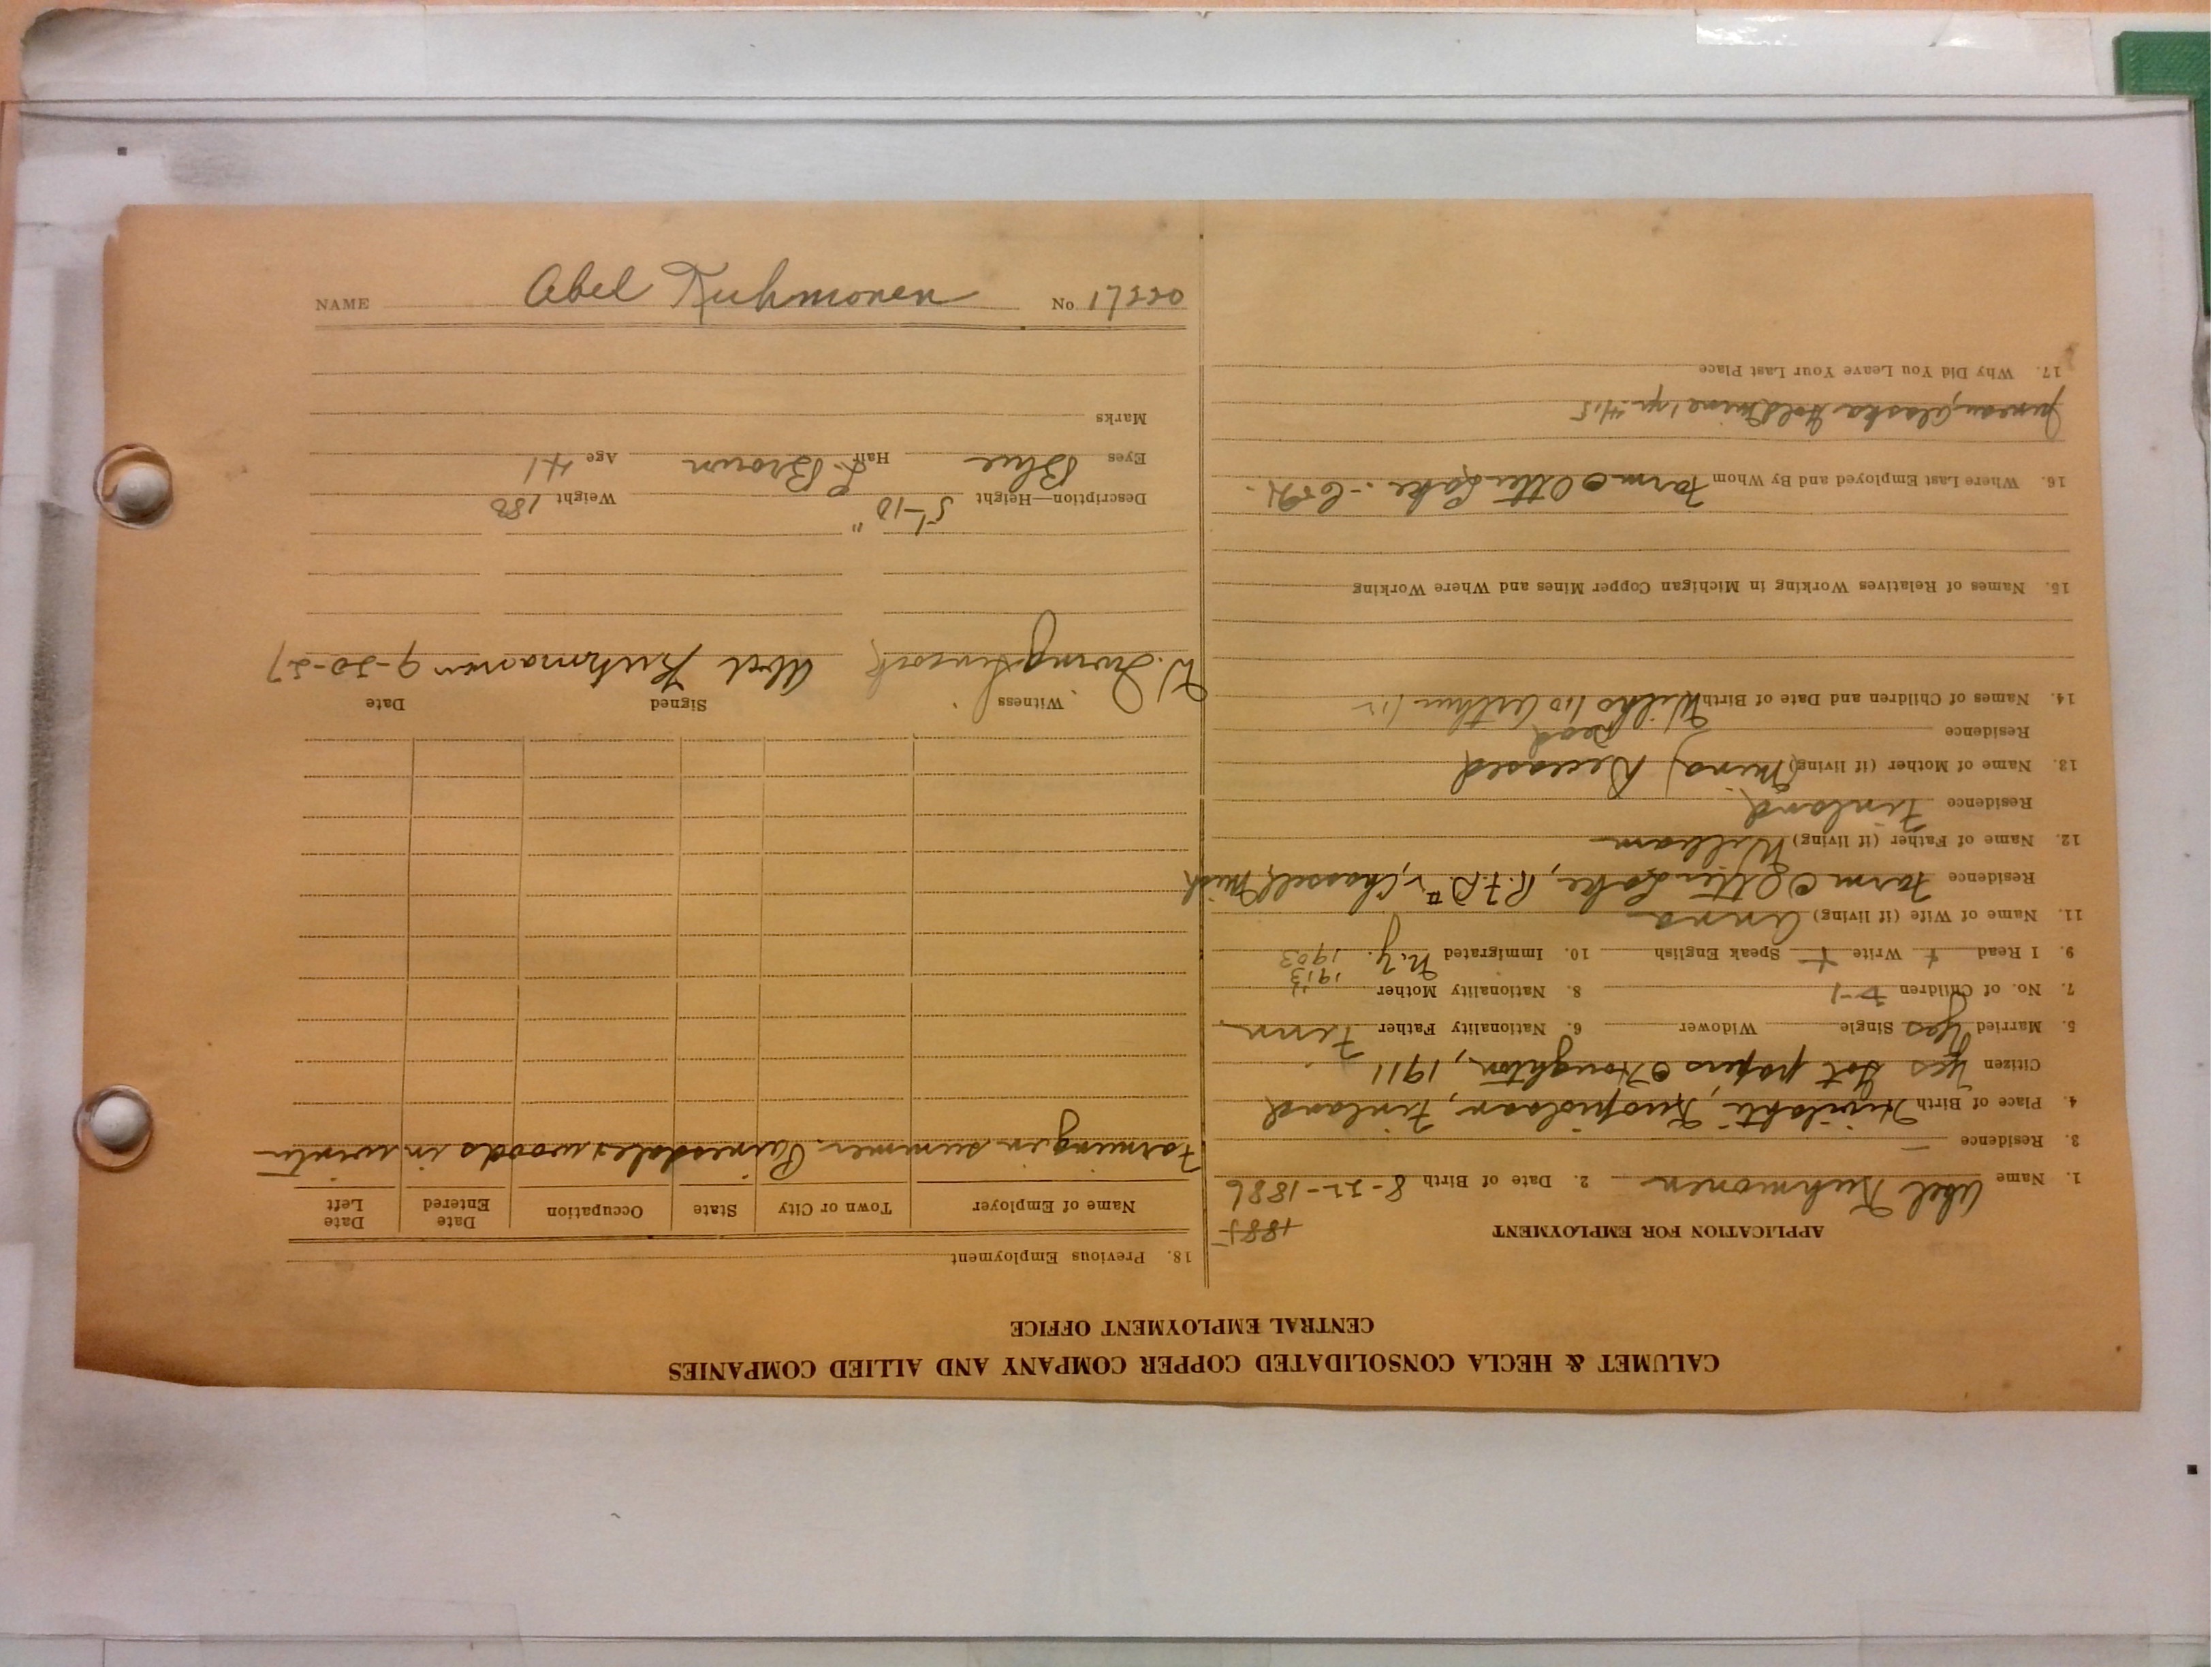 CALUMET & HECLA CONSOLIDATED COPPER COMPANY AND ALLIED COMPANIES
CENTRAL EMPLOYMENT OFFICE
APPLICATION FOR EMPLOYMENT
1885
1. Name Abel Kuhmonen 2. Date of Birth 8-22-1886
3. Residence
4. Place of Birth Kuopiolaan, Finland
Citizen Yes Got papers Houghton, 1911
5. Married Yes Single Widower 6. Nationality Father Finn.
7. No. of Children 8. Nationality Mother "
1913
9. I Read + Write + Speak English 10. Immigrated N.Y. 1903
11. Name of Wife (if living) Anna
Residence Farm @ Otter Lake, R.F.D. #2, Chassell, Mich
12. Name of Father (if living) William
Residence Finland
13. Name of Mother (if living) (Mina) Deceased
Residence Dead
14. Names of Children and Date of Birth Wilho Arthur
15. Names of Relatives Working in Michigan Copper Mines and Where Working
16. Where Last Employed and By Whom Farm @ Otter Lake - C & H.
Juneau, Alaska Gold Mine 1 yr.
17. Why Did You Leave Your Last Place
18. Previous Employment
Name of Employer Town or City State Occupation Date Entered Date Left
Farming in summer. Painesdale woods in winter
Witness Signed Date
W. Irving Abel Kuhmonen 9-20-27
Description—Height 5'-10" Weight 180
Eyes Blue Hair L. Brown Age 41
Marks
NAME Abel Kuhmonen No. 17220